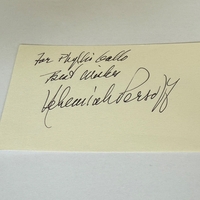 For Phyllis Gallo
Best Wishes
Nehemiah Persoff